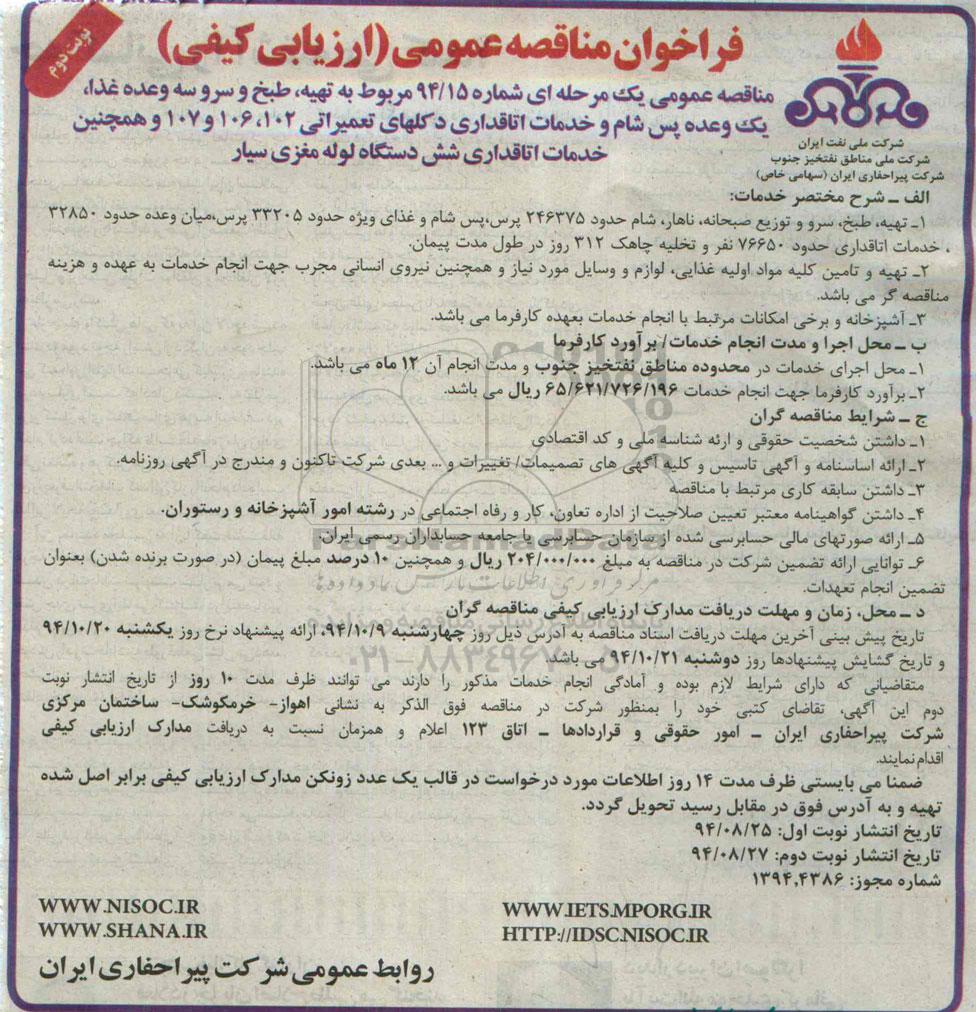 نوبت دوم
فراخوان مناقصه عمومی (ارزیابی کیفی)
مناقصه عمومی یک مرحله ای شماره ۹۴/۱۵ مربوط به تهیه، طبخ و سرو سه وعده غذا،
یک وعده پس شام و خدمات اتاقداری دکلهای تعمیراتی ۱۰۲، ۱۰۶ و ۱۰۷ و همچنین
خدمات اتاقداری شش دستگاه لوله مغزی سیار
شرکت ملی نفت ایران
شرکت ملی مناطق نفتخیز جنوب
شرکت پیراحفاری ایران (سهامی خاص)
الف ـ شرح مختصر خدمات:
۱ـ تهیه، طبخ، سرو و توزیع صبحانه، ناهار، شام حدود ۲۴۶۳۷۵ پرس،پس شام و غذای ویژه حدود ۳۳۲۰۵ پرس،میان وعده حدود ۳۲۸۵۰
، خدمات اتاقداری حدود ۷۶۶۵۰ نفر و تخلیه چاهک ۳۱۲ روز در طول مدت پیمان.
۲ـ تهیه و تامین کلیه مواد اولیه غذایی، لوازم و وسایل مورد نیاز و همچنین نیروی انسانی مجرب جهت انجام خدمات به عهده و هزینه
مناقصه گر می باشد.
۳ـ آشپزخانه و برخی امکانات مرتبط با انجام خدمات بعهده کارفرما می باشد.
ب ـ محل اجرا و مدت انجام خدمات/ برآورد کارفرما
۱ـ محل اجرای خدمات در محدوده مناطق نفتخیز جنوب و مدت انجام آن ۱۲ ماه می باشد.
۲ـ برآورد کارفرما جهت انجام خدمات ۶۵/۶۲۱/۷۲۶/۱۹۶ ریال می باشد.
ج ـ شرایط مناقصه گران
۱ـ داشتن شخصیت حقوقی و ارئه شناسه ملی و کد اقتصادی
۲ـ ارائه اساسنامه و آگهی تاسیس و کلیه آگهی های تصمیمات/ تغییرات و ... بعدی شرکت تاکنون و مندرج در آگهی روزنامه.
۳ـ داشتن سابقه کاری مرتبط با مناقصه
۴ـ داشتن گواهینامه معتبر تعیین صلاحیت از اداره تعاون، کار و رفاه اجتماعی در رشته امور آشپزخانه و رستوران.
۵ـ ارائه صورتهای مالی حسابرسی شده از سازمان حسابرسی یا جامعه حسابداران رسمی ایران.
۶ـ توانایی ارائه تضمین شرکت در مناقصه به مبلغ ۲۰۴/۰۰۰/۰۰۰ ریال و همچنین ۱۰ درصد مبلغ پیمان (در صورت برنده شدن) بعنوان
تضمین انجام تعهدات.
د ـ محل، زمان و مهلت دریافت مدارک ارزیابی کیفی مناقصه گران
تاریخ پیش بینی آخرین مهلت دریافت اسناد مناقصه به آدرس ذیل روز چهارشنبه ۹۴/۱۰/۹، ارائه پیشنهاد نرخ روز یکشنبه ۹۴/۱۰/۲۰
و تاریخ گشایش پیشنهادها روز دوشنبه ۹۴/۱۰/۲۱ می باشد.
متقاضیانی که دارای شرایط لازم بوده و آمادگی انجام خدمات مذکور را دارند می توانند ظرف مدت ۱۰ روز از تاریخ انتشار نوبت
دوم این آگهی، تقاضای کتبی خود را بمنظور شرکت در مناقصه فوق الذکر به نشانی اهواز- خرمکوشک- ساختمان مرکزی
شرکت پیراحفاری ایران ـ امور حقوقی و قراردادها ـ اتاق ۱۲۳ اعلام و همزمان نسبت به دریافت مدارک ارزیابی کیفی
اقدام نمایند.
ضمنا می بایستی ظرف مدت ۱۴ روز اطلاعات مورد درخواست در قالب یک عدد زونکن مدارک ارزیابی کیفی برابر اصل شده
تهیه و به آدرس فوق در مقابل رسید تحویل گردد.
تاریخ انتشار نوبت اول: ۹۴/۰۸/۲۵
تاریخ انتشار نوبت دوم: ۹۴/۰۸/۲۷
شماره مجوز: ۱۳۹۴,۴۳۸۶
WWW.NISOC.IR
WWW.IETS.MPORG.IR
WWW.SHANA.IR
HTTP://IDSC.NISOC.IR
روابط عمومی شرکت پیراحفاری ایران
ParsNamadData